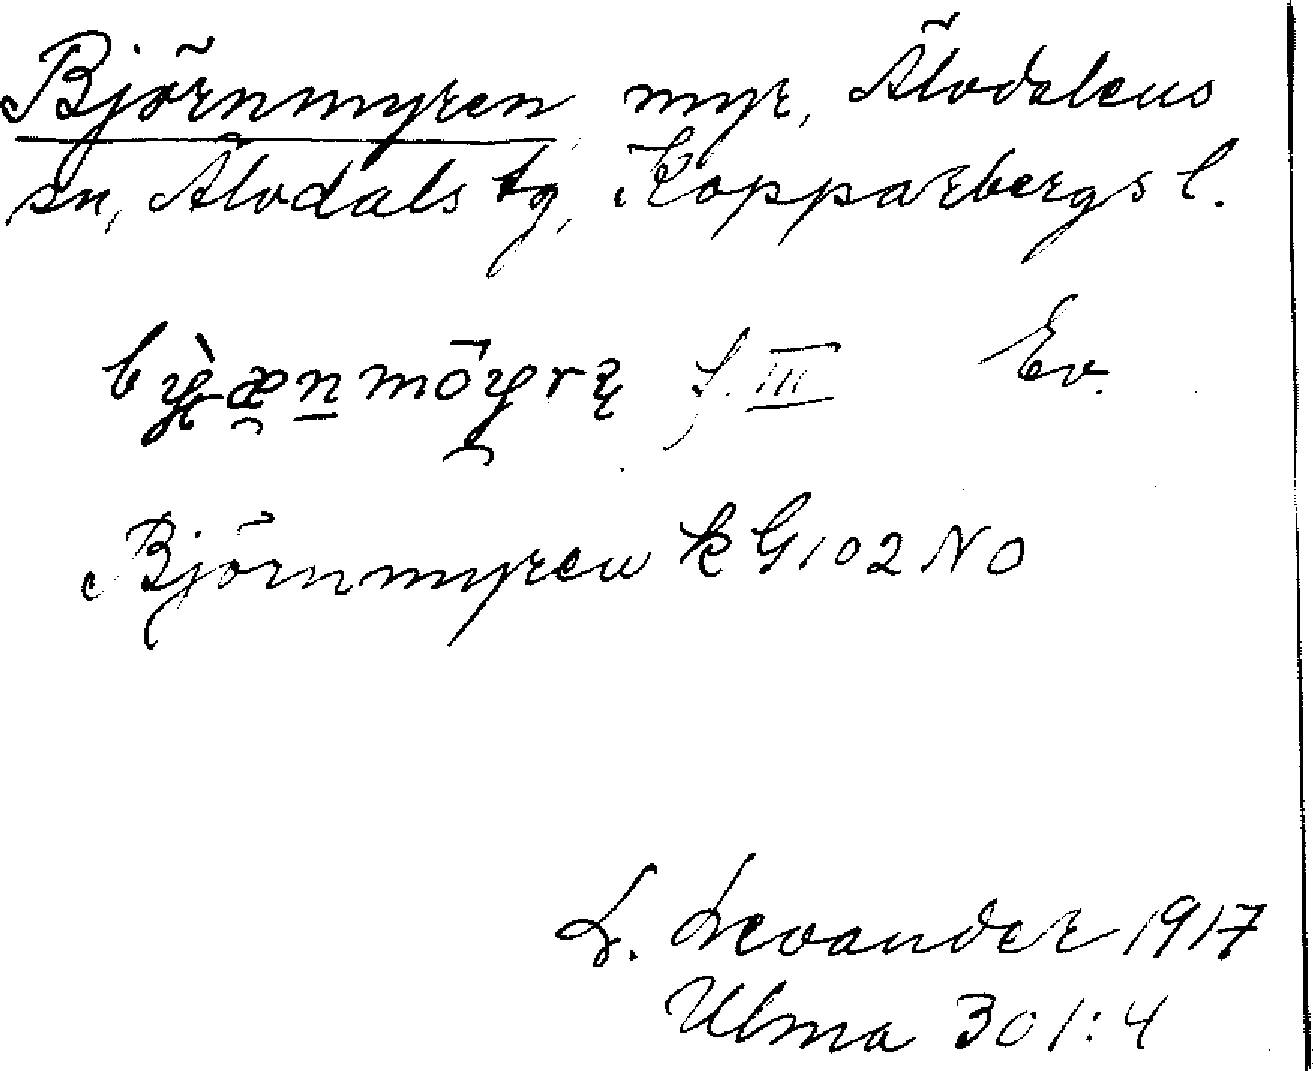 Björnmyren myr, Älvdalens
sn, Älvdals tg, Kopparbergs l.
f. III Ev.
Björnmyren k G 102 NO
L. Levander 1917
Ulma 301:4